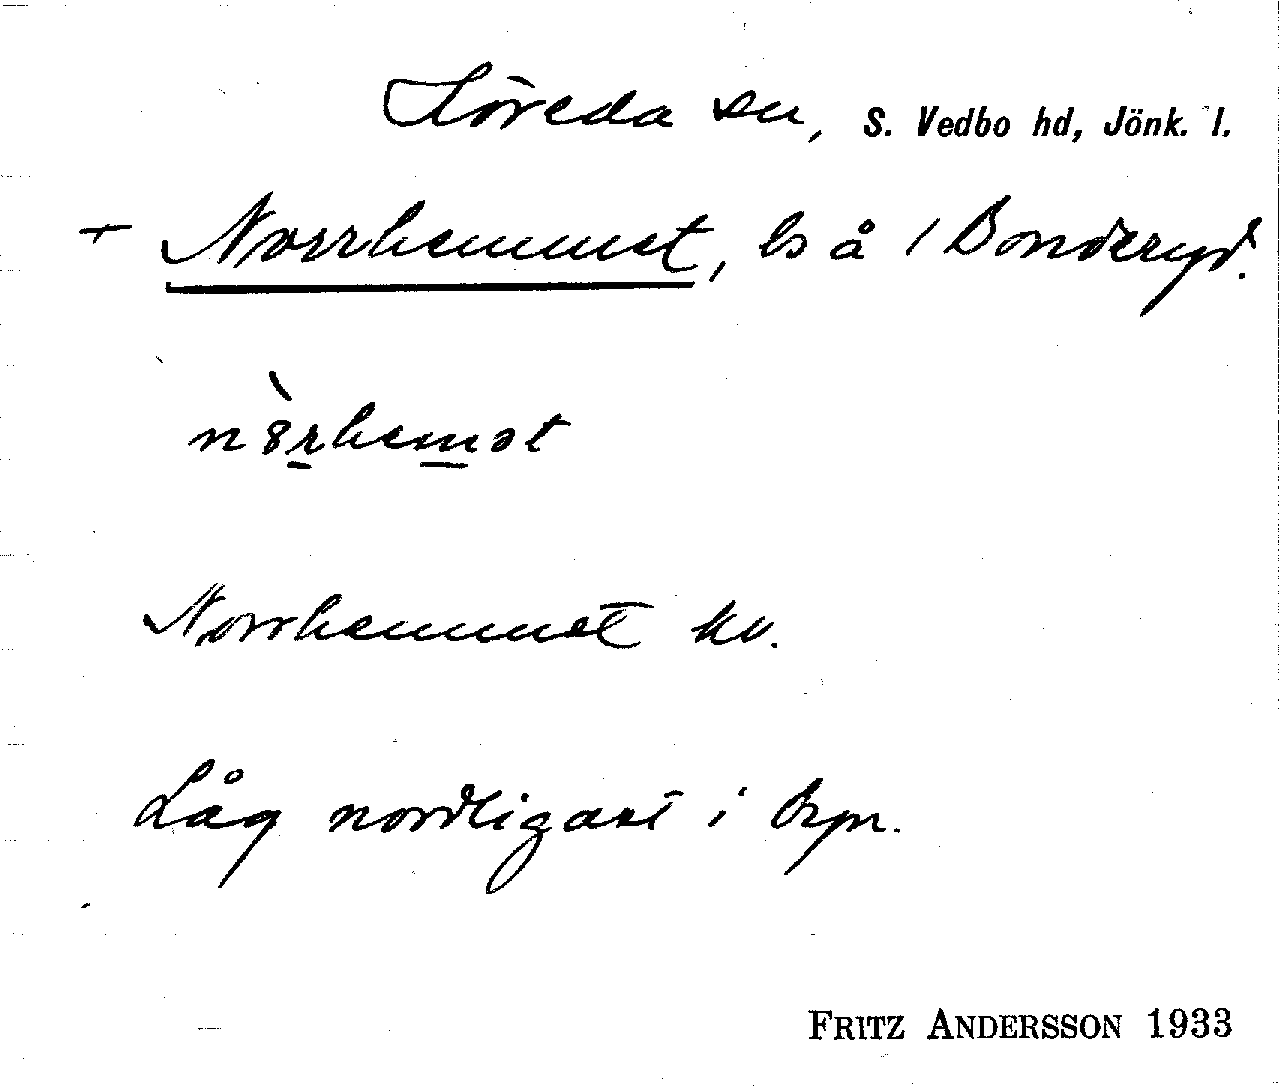 Flöreda sn, S. Vedbo hd, Jönk. l.
+ Norrhemmet, ls å 1 Bonderyd.
nòrhemət
Norrhemmet kv.
Låg nordligast i byn.
FRITZ ANDERSSON 1933